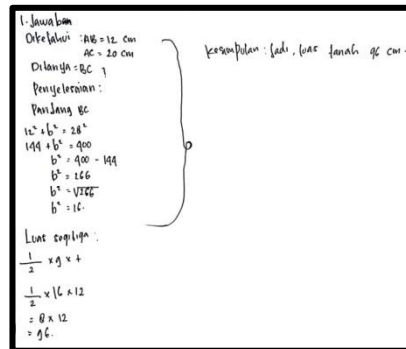 1. Jawaban
Diketahui : AB = 12 cm
AC = 20 cm
Ditanya = BC ?
Penyelesaian :
Panjang BC
12² + b² = 28²
144 + b² = 400
b² = 400 - 144
b² = 266
b² = √266
b² = 16.
Luas segitiga :
1/2 x g x t
1/2 x 16 x 12
= 8 x 12
= 96.
Kesimpulan : Jadi, luas tanah 96 cm.